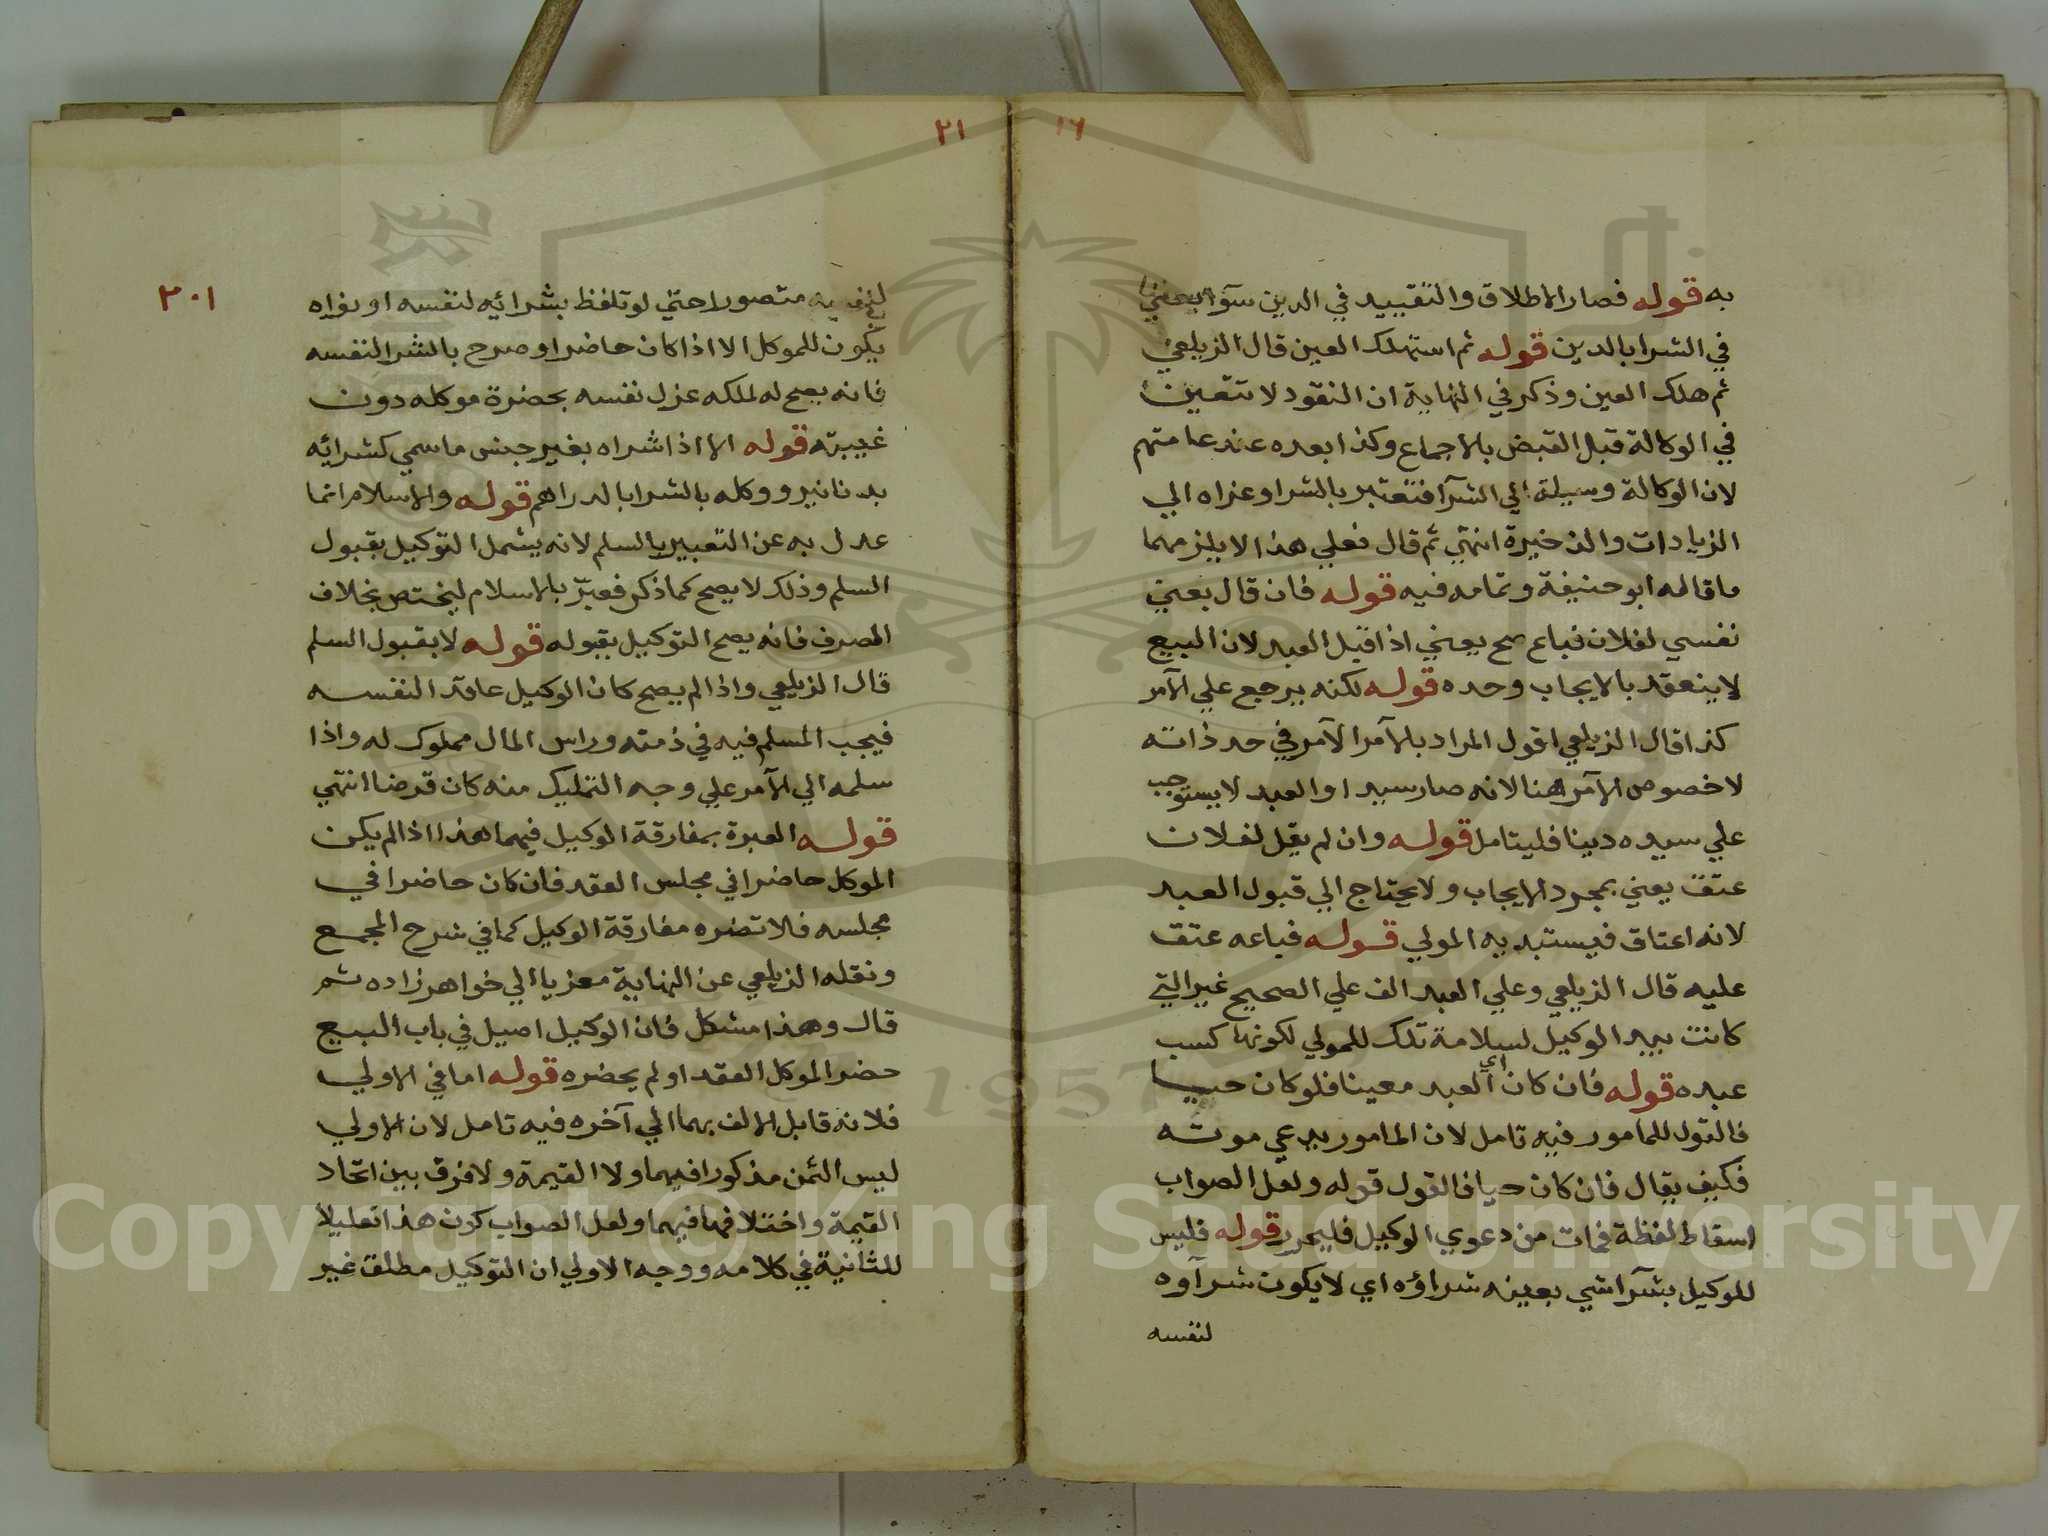 ١٦
به قوله فصار الاطلاق والتقييد في الدين سوآ يعني
في الشرا بالدين قوله ثم استهلك العين قال الزيلعي
ثم هلك العين وذكر في النهاية ان النقود لا تتعين
في الوكالة قبل القبض بالاجماع وكذا بعده عند عامتهم
لان الوكالة وسيلة الي الشرآ فتعتبر بالشرا وعزاه الي
الزيادات والذخيرة انتهي ثم قال فعلي هذا لا يلزمهما
ما قاله ابو حنيفة وتمامه فيه قوله فان قال بعني
نفسي لفلان فباع صح يعني اذا قبل العبد لان البيع
لا ينعقد بالايجاب وحده قوله لكنه يرجع علي الآمر
كذا قال الزيلعي اقول المراد بالآمر الآمر في حد ذاته
لا خصوص الآمر هنا لانه صار سيدا والعبد لا يستوجب
علي سيده دينا فليتامل قوله وان لم يقل لفلان
عتق يعني بمجرد الايجاب ولا يحتاج الي قبول العبد
لانه اعتاق فيستبد به المولي قوله فباعه عتق
عليه قال الزيلعي وعلي العبد الف علي الصحيح غير التي
كانت بيد الوكيل لسلامة تلك للمولي لكونها كسب
عبده قوله فان كان اي العبد معينا فلو كان حيا
فالقول للمامور فيه تامل لان المامور يدعي موته
فكيف يقال فان كان حيا فالقول قوله ولعل الصواب
اسقاط لفظة فمات من دعوي الوكيل فليحرر قوله فليس
للوكيل بشرآ شي بعينه شراؤه اي لا يكون شرآوه
لنفسه
٢١
٢٠١
متصورا حتي لو تلفظ بشرائيه لنفسه او نواه
يكون للموكل الا اذا كان حاضرا وصرح بالشرا لنفسه
فانه يصح له لملكه عزل نفسه بحضرة موكله دون
غيبته قوله الا اذا شراه بغير جنس ما سمي كشرائه
بدنانير ووكله بالشرا بالدراهم قوله والاسلام انما
عدل به عن التعبير بالسلم لانه يشمل التوكيل بقبول
السلم وذلك لا يصح كما ذكر فعبر بالاسلام ليختص بخلاف
الصرف فانه يصح التوكيل بقبوله قوله لا بقبول السلم
قال الزيلعي واذا لم يصح كان الوكيل عاقدا لنفسه
فيجب المسلم فيه في ذمته وراس المال مملوك له واذا
سلمه الي الآمر علي وجه التمليك منه كان قرضا انتهي
قوله العبرة بمفارقة الوكيل فيهما هذا اذا لم يكن
الموكل حاضرا في مجلس العقد فان كان حاضرا في
مجلسه فلا تضره مفارقة الوكيل كما في شرح المجمع
ونقله الزيلعي عن النهاية معزيا الي خواهر زاده ثم
قال وهذا مشكل فان الوكيل اصيل في باب البيع
حضر الموكل العقد او لم يحضره قوله اما في الاولي
فلانه قابل الالف بهما الي آخره فيه تامل لان الاولي
ليس الثمن مذكورا فيهما ولا القيمة ولا فرق بين اتحاد
القيمة واختلافها فيهما ولعل الصواب كون هذا تعليلا
للثانية في كلامه ووجه الاولي ان التوكيل مطلق غير
Copyright © King Saud University
1957